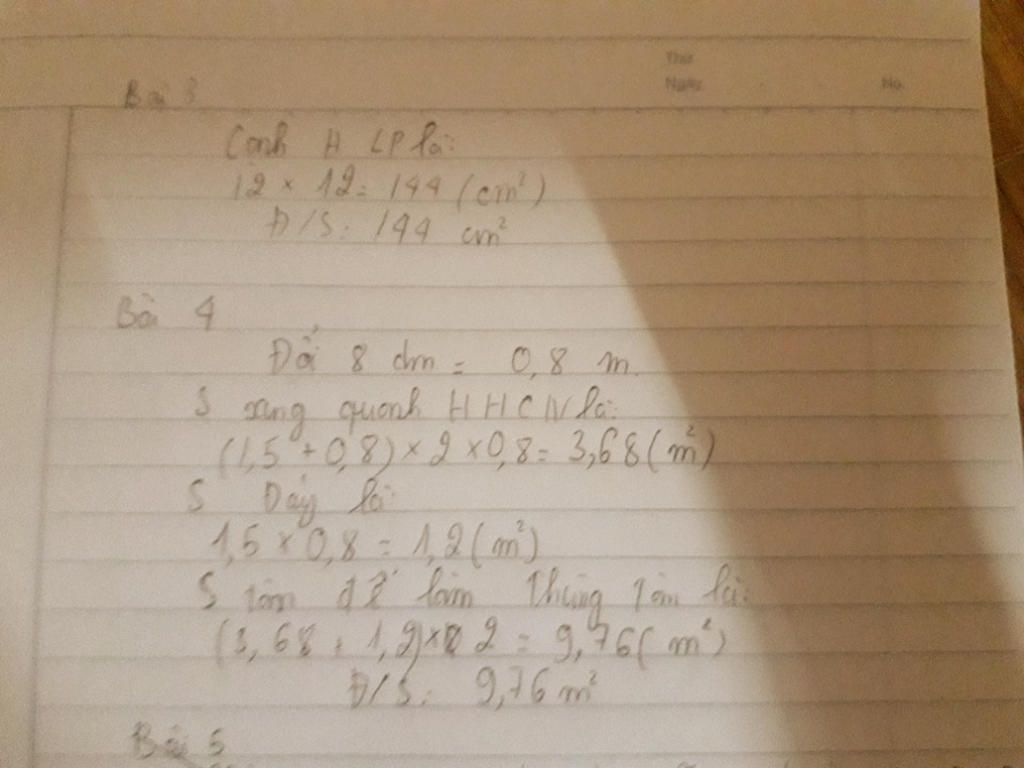 Thứ
Ngày No.
Bài 3
Cạnh H LP là:
12 × 12 = 144 (cm²)
Đ/S: 144 cm²
Bài 4
Đổi 8 dm = 0,8 m
S xung quanh HHCN là:
(1,5 + 0,8) × 2 × 0,8 = 3,68 (m²)
S Đáy là:
1,5 × 0,8 = 1,2 (m²)
S tôn để làm thùng tôn là:
(3,68 + 1,2) × 2 = 9,76 (m²)
Đ/S: 9,76 m²
Bài 5